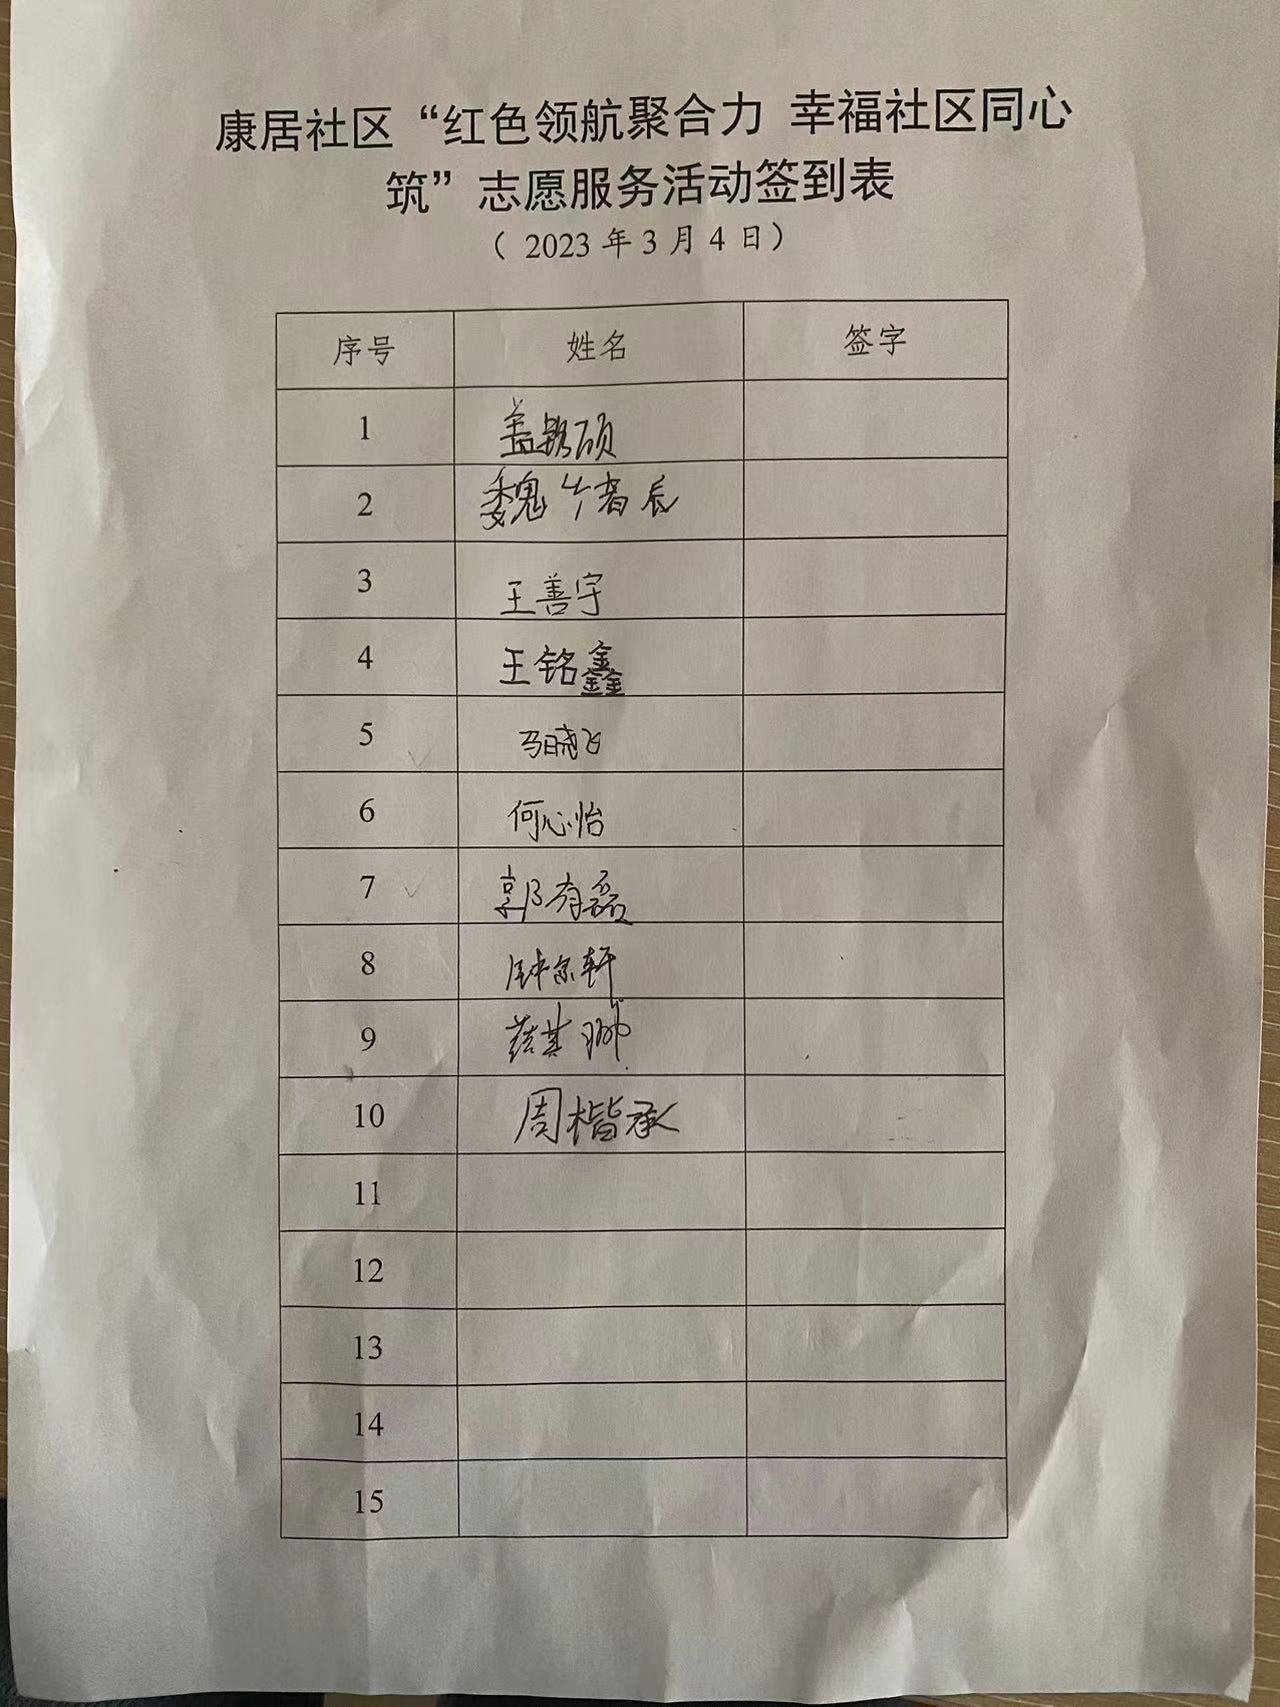 康居社区“红色领航聚合力 幸福社区同心
筑”志愿服务活动签到表
（ 2023 年 3 月 4 日）
序号 姓名 签字
1 盖 硕
2 魏
3 王善宇
4 王铭鑫
5 马晓飞
6 何心怡
7 郭有磊
8 轩
9 其
10 周楷承
11
12
13
14
15